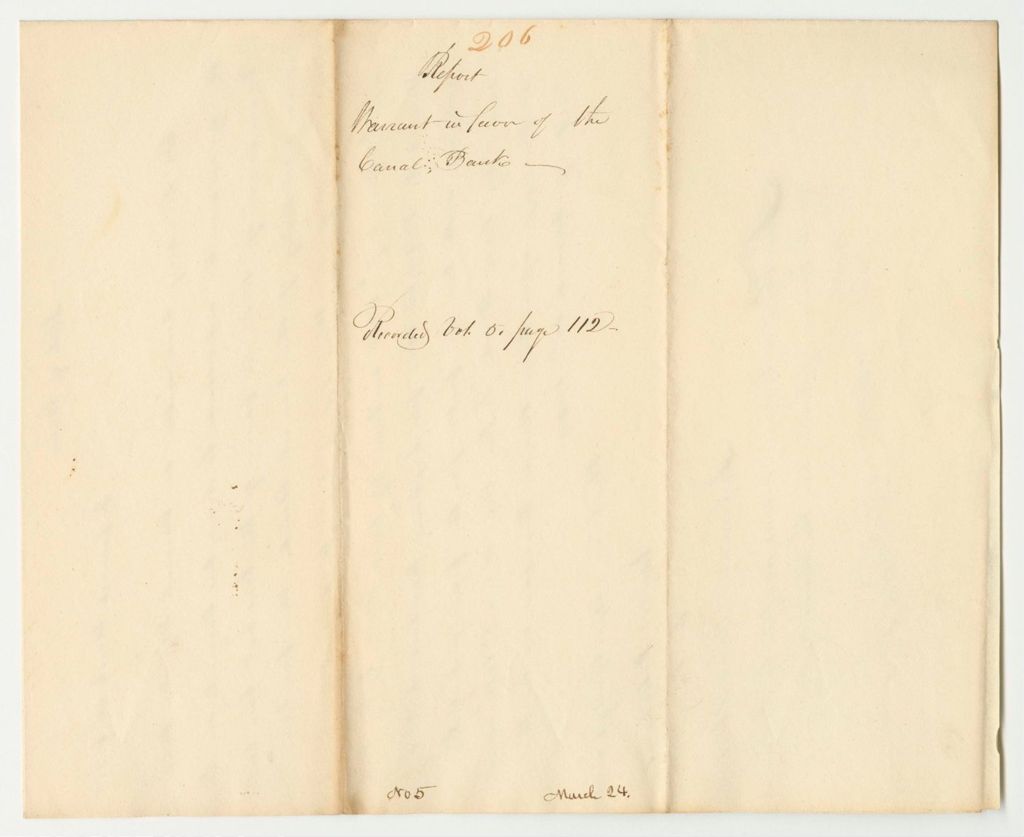 206
Report
Warrant in favor of the
Canal Bank
Recorded Vol. 5. page 112
No 5
March 24.